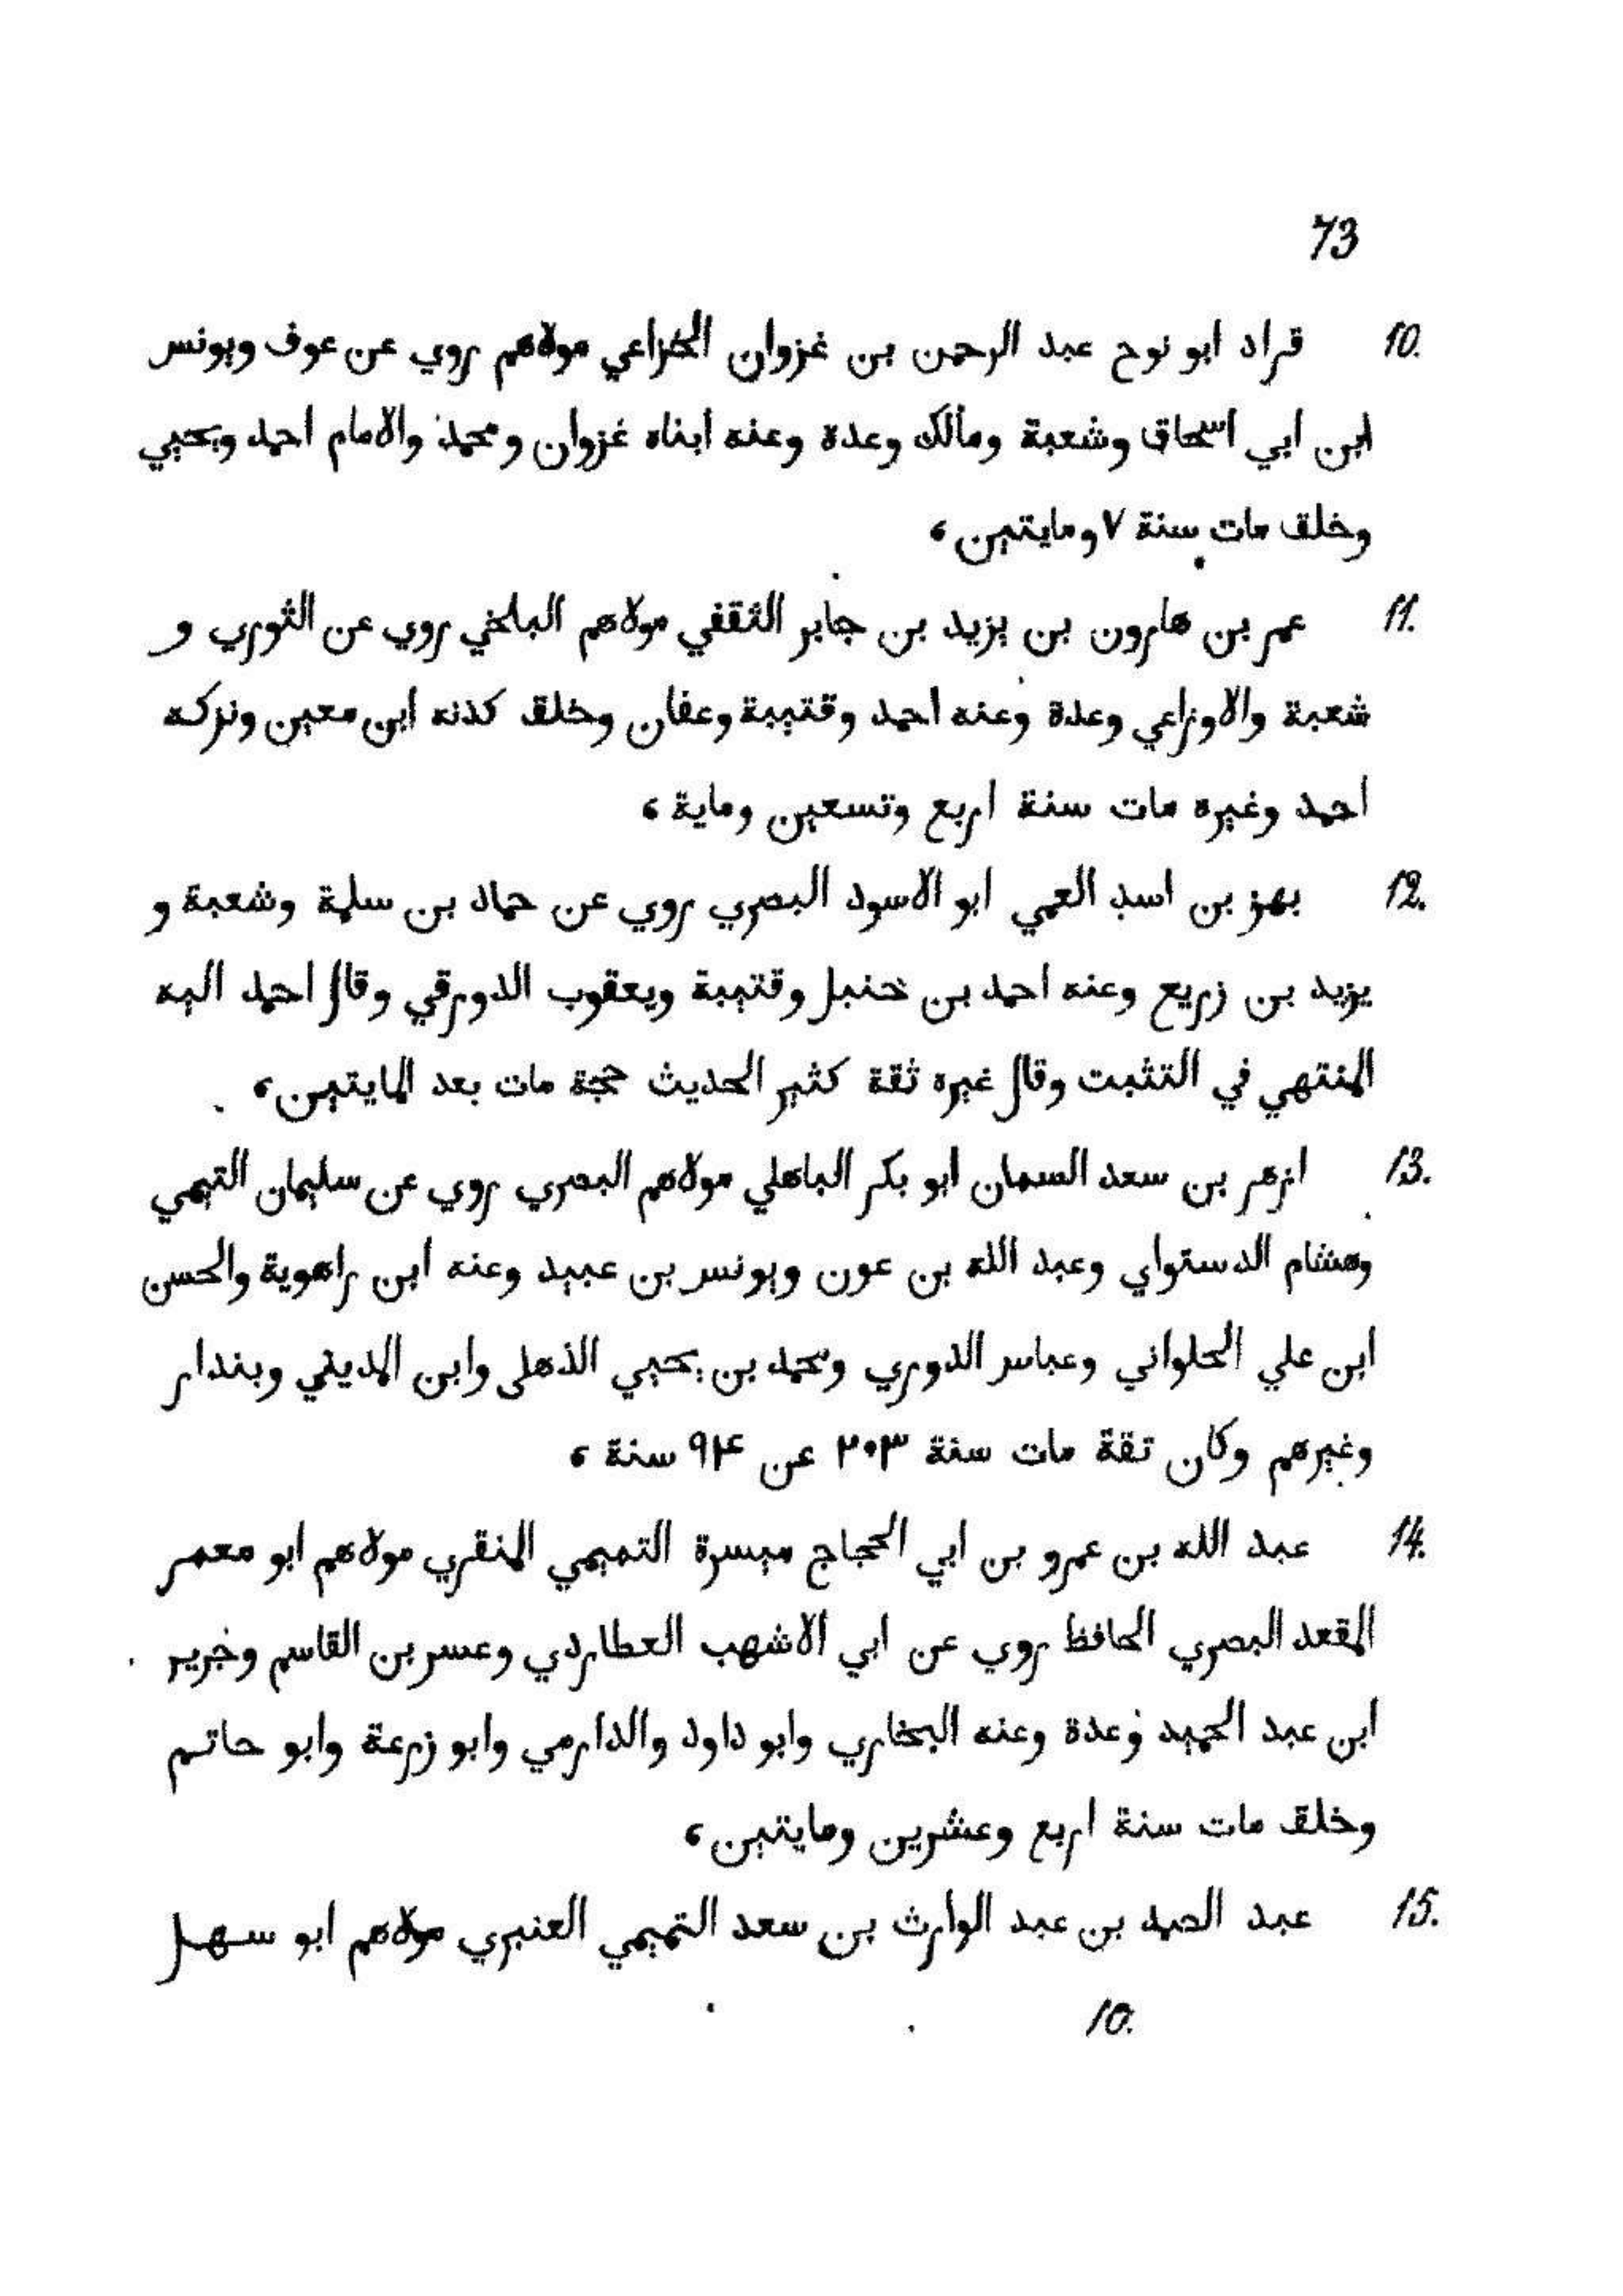 73
10. قراد ابو نوح عبد الرحمن بن غزوان الخزاعي مولاهم روي عن عوف ويونس
ابن ابي اسحاق وشعبة ومالك وعدة وعنه ابناه غزوان ومحمد والامام احمد ويحيي
وخلق مات سنة ٧ ومايتين ،
11. عمر بن هارون بن يزيد بن جابر الثقفي مولاهم البلخي روي عن الثوري و
شعبة والاوزاعي وعدة وعنه احمد وقتيبة وعفان وخلق كذنه ابن معين وتركه
احمد وغيره مات سنة اربع وتسعين وماية ،
12. بهز بن اسد العمي ابو الاسود البصري روي عن حماد بن سلمة وشعبة و
يزيد بن زريع وعنه احمد بن حنبل وقتيبة ويعقوب الدورقي وقال احمد اليه
المنتهي في التثبت وقال غيره ثقة كثير الحديث حجة مات بعد المايتين ،
13. ازهر بن سعد السمان ابو بكر الباهلي مولاهم البصري روي عن سليمان التيمي
وهشام الدستواي وعبد الله بن عون ويونس بن عبيد وعنه ابن راهوية والحسن
ابن علي الحلواني وعباس الدوري ومحمد بن يحيي الذهلى وابن المديني وبندار
وغيرهم وكان تقة مات سنة ٢٠٣ عن ٩۴ سنة ،
14. عبد الله بن عمرو بن ابي الحجاج ميسرة التميمي المنقري مولاهم ابو معمر
المقعد البصري الحافظ روي عن ابي الاشهب العطاردي وعسر بن القاسم وجرير
ابن عبد الحميد وعدة وعنه البخاري وابو داود والدارمي وابو زرعة وابو حاتم
وخلق مات سنة اربع وعشرين ومايتين ،
15. عبد الصمد بن عبد الوارث بن سعد التميمي العنبري مولاهم ابو سهل
10.